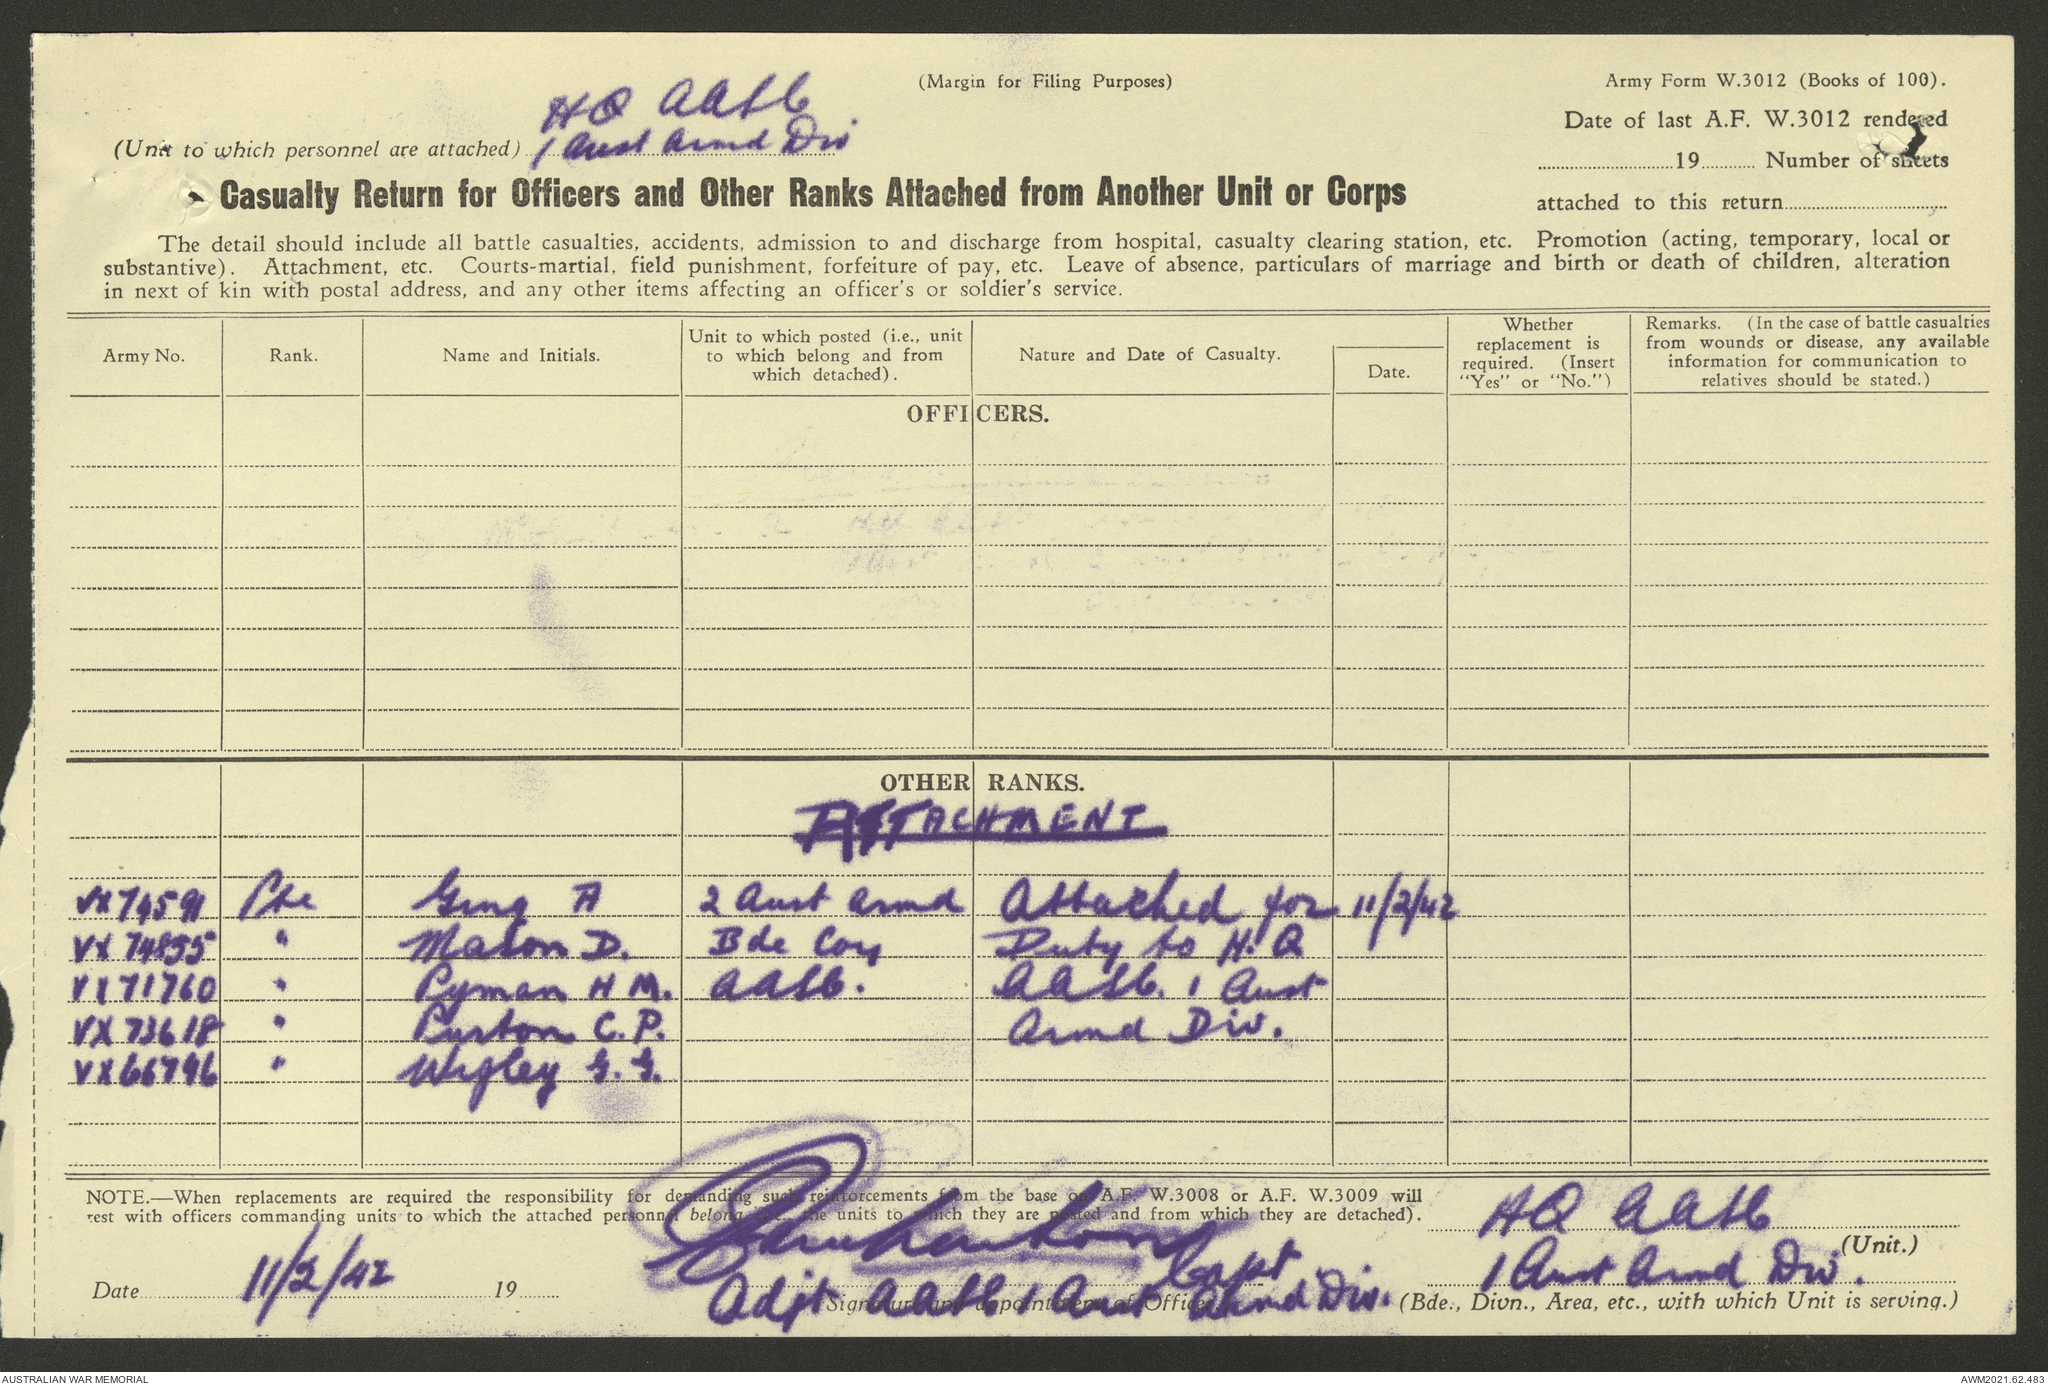 (Margin for Filing Purposes)
Army Form W.3012 (Books of 100).
HQ AASC
(Unit to which personnel are attached) 1 Aust Armd Div
Date of last A.F. W.3012 rendered
19 Number of sheets
attached to this return
Casualty Return for Officers and Other Ranks Attached from Another Unit or Corps
The detail should include all battle casualties, accidents, admission to and discharge from hospital, casualty clearing station, etc. Promotion (acting, temporary, local or
substantive). Attachment, etc. Courts-martial, field punishment, forfeiture of pay, etc. Leave of absence, particulars of marriage and birth or death of children, alteration
in next of kin with postal address, and any other items affecting an officer's or soldier's service.
Army No. Rank. Name and Initials. Unit to which posted (i.e., unit to which belong and from which detached). Nature and Date of Casualty. Date. Whether replacement is required. (Insert "Yes" or "No.") Remarks. (In the case of battle casualties from wounds or disease, any available information for communication to relatives should be stated.)
OFFICERS.
OTHER RANKS.
ATTACHMENT
VX74591 Pte A 2 Aust Armd Attached for 11/2/42
VX74855 " Mason D. Bde Coy Duty to H.Q
VX71760 " Pyman H M. AASC. AASC. 1 Aust
VX73618 " Purton C.P. Armd Div.
VX66796 " Wigley G.G.
NOTE.—When replacements are required the responsibility for demanding such reinforcements from the base on A.F. W.3008 or A.F. W.3009 will
rest with officers commanding units to which the attached personnel belong (i.e., the units to which they are posted and from which they are detached).
HQ AASC
(Unit.)
Capt
Date 11/2/42 19
Adjt AASC 1 Aust Armd Div.
(Signature and appointment of Officer
1 Aust Armd Div.
(Bde., Divn., Area, etc., with which Unit is serving.)
AUSTRALIAN WAR MEMORIAL
AWM2021.62.483